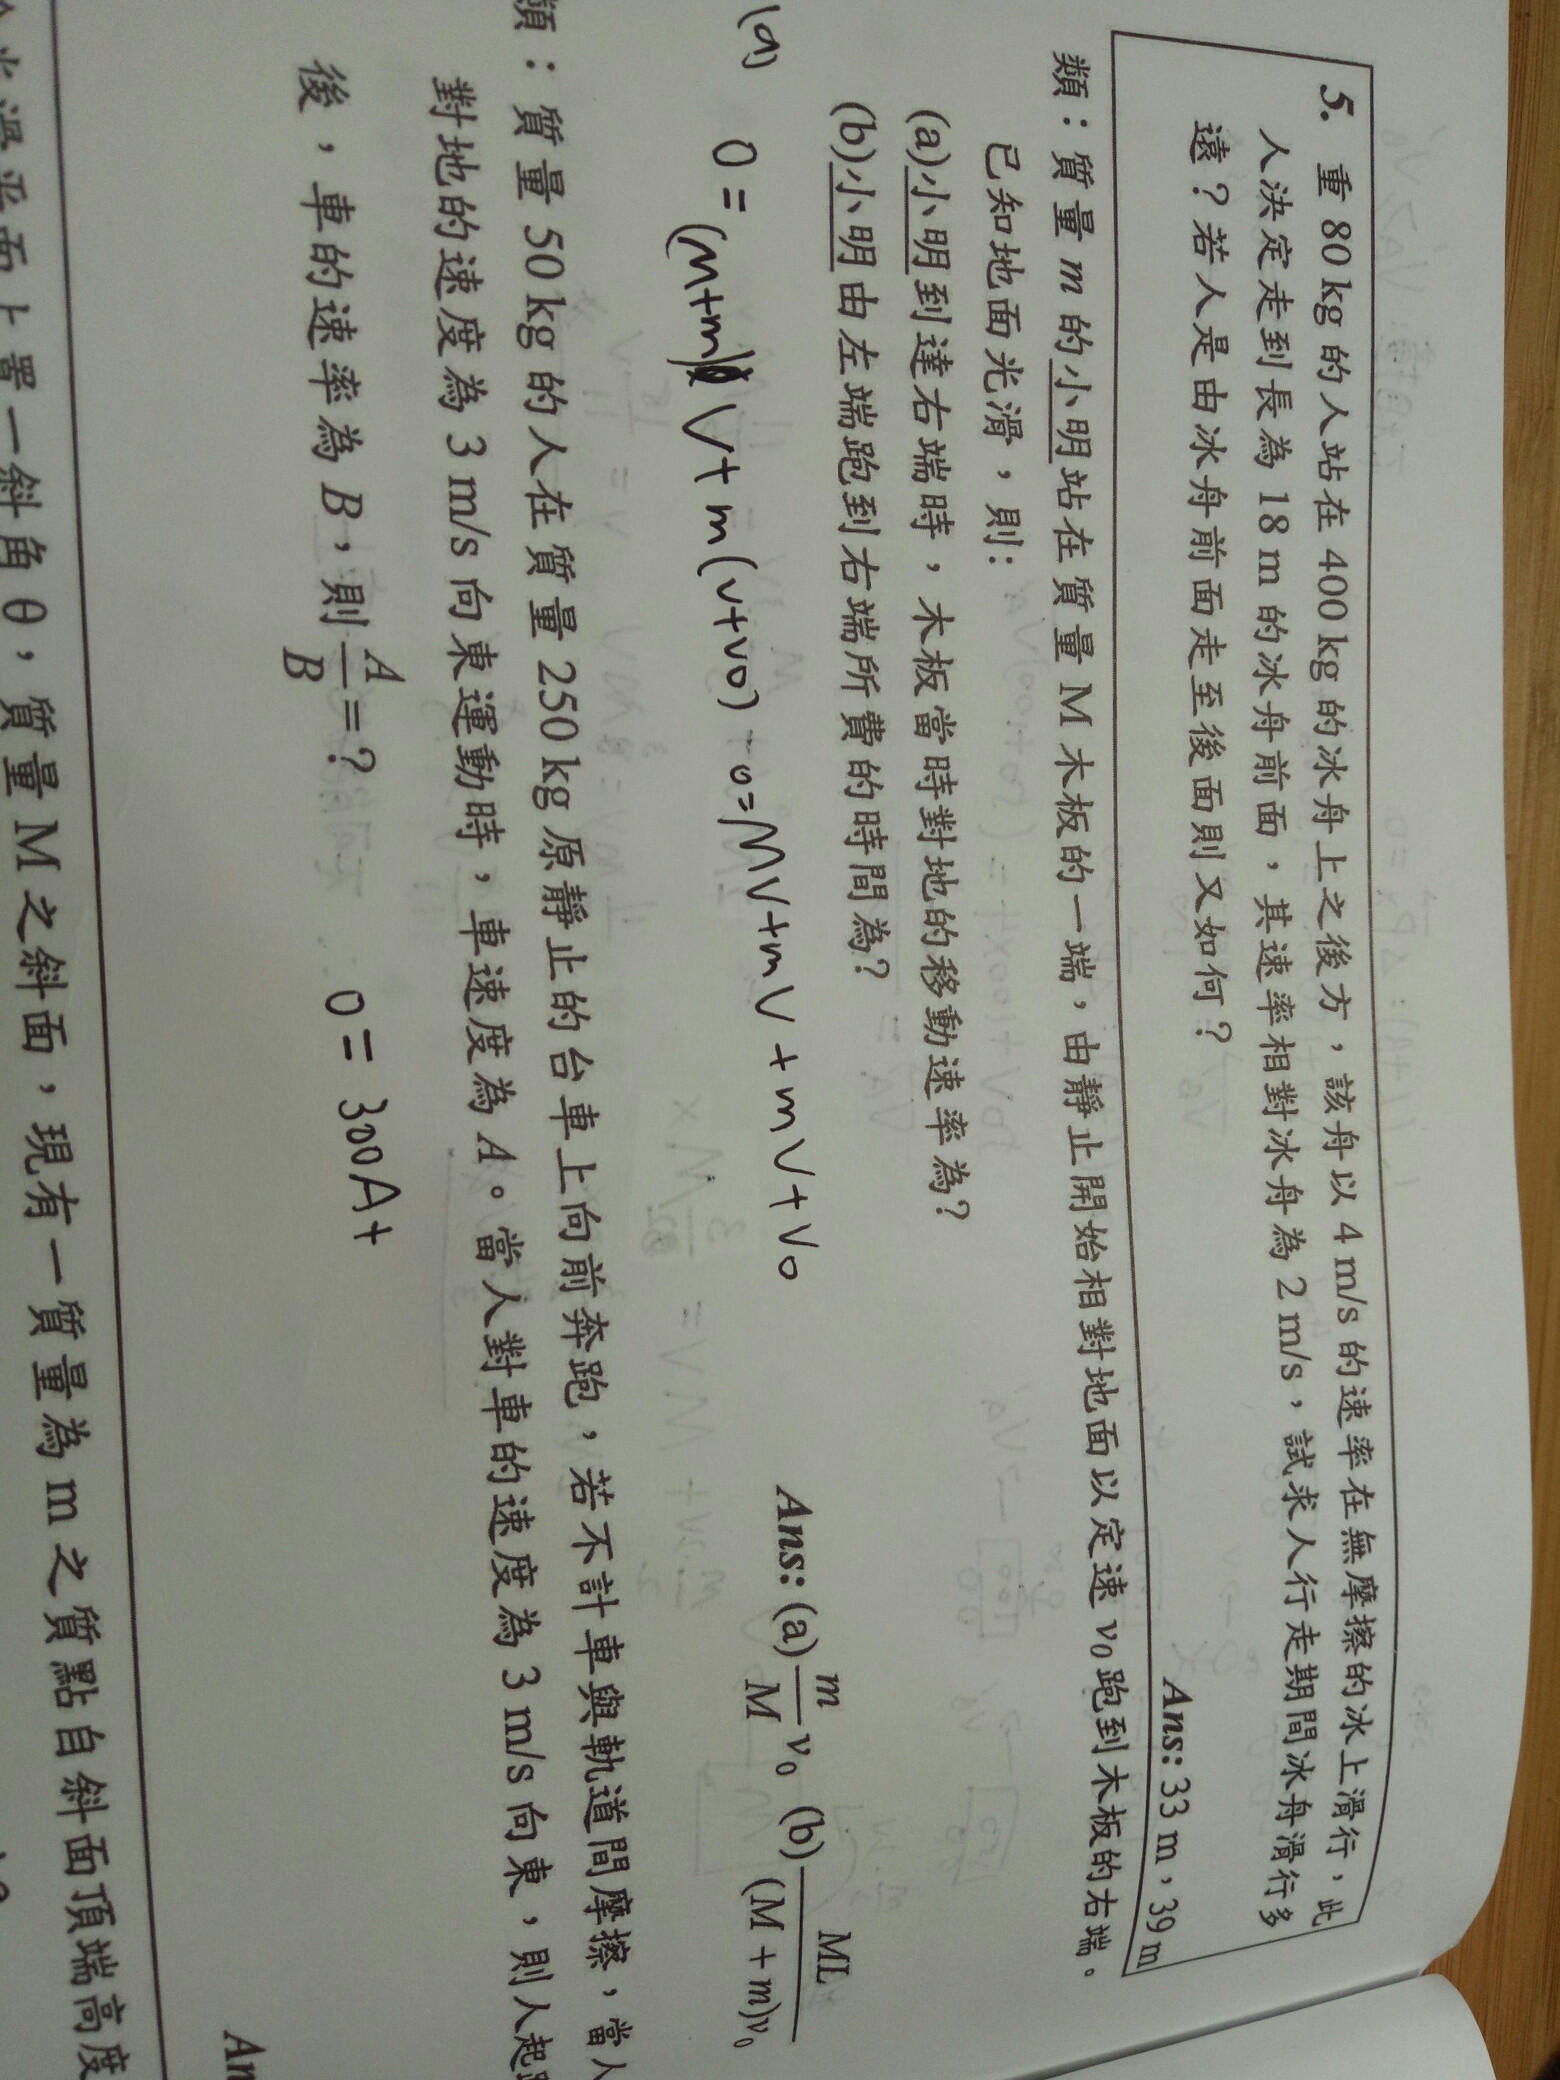 5. 重 80 kg 的人站在 400 kg 的冰舟上之後方，該舟以 4 m/s 的速率在無摩擦的冰上滑行，此
人決定走到長為 18 m 的冰舟前面，其速率相對冰舟為 2 m/s，試求人行走期間冰舟滑行多
遠？若人是由冰舟前面走至後面則又如何？
Ans: 33 m，39 m
類：質量 m 的小明站在質量 M 木板的一端，由靜止開始相對地面以定速 v₀ 跑到木板的右端。
已知地面光滑，則：
(a)小明到達右端時，木板當時對地的移動速率為?
(b)小明由左端跑到右端所費的時間為?
Ans: (a) m/M v₀ (b) ML/(M + m)v₀
(a) 0 = (m+m) V + m(v+v0) 0=MV+mV+mV+V0
類：質量 50 kg 的人在質量 250 kg 原靜止的台車上向前奔跑，若不計車與軌道間摩擦，當人
對地的速度為 3 m/s 向東運動時，車速度為 A。當人對車的速度為 3 m/s 向東，則人起
後，車的速率為 B，則 A/B = ?
0 = 300A+
斜角 θ，質量 M 之斜面，現有一質量為 m 之質點自斜面頂端高度